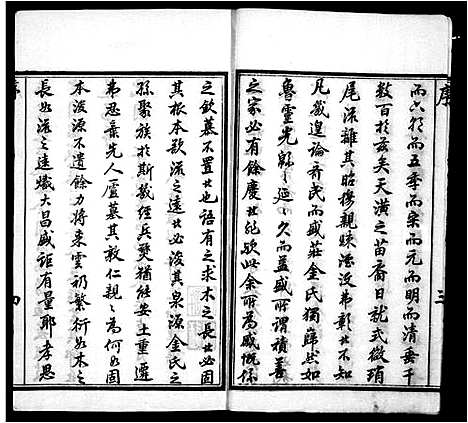 序
三
而六朝而五季而宋而元而明而清垂千
數百於茲矣天潢之苗裔日就式微瑣
尾流離其昭穆親疎湮沒弗彰比不知
凡幾遑論齊民而盛莊金氏獨巋然如
魯靈光緜之延之久而益盛所謂積善
之家必有餘慶其能歟此余所為感慨係
之欽慕不置者也語有之求木之長者必固
其根本欲流之遠者必浚其泉源金氏之
孫聚族於斯幾經兵燹猶能安土重遷
弗忍棄先人廬墓其敦仁親之為何如固
本浚源不遺餘力將來雲礽繁衍如木之
長如流之遠熾大昌盛詎有量耶孝思